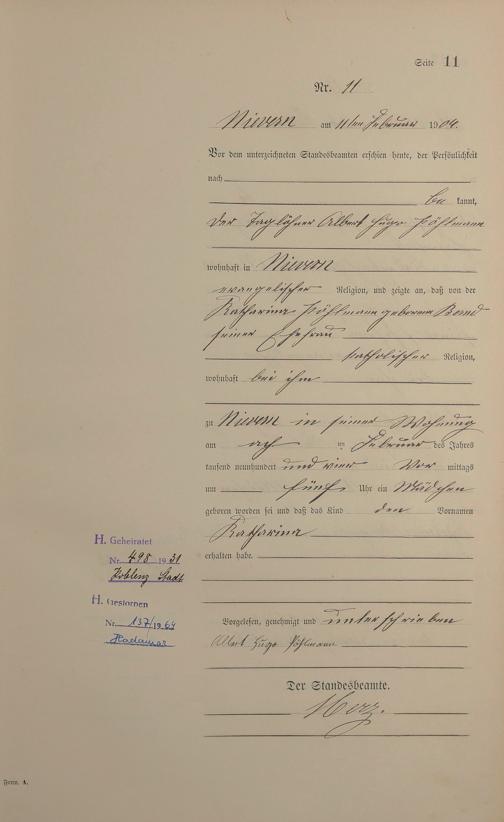 Seite 11
Nr. 11
Nievern am 11ten Februar 1904.
Vor dem unterzeichneten Standesbeamten erschien heute, der Persönlichkeit
nach
be kannt,
der Taglöhner Albert Hugo Pöhlmann
wohnhaft in Nievern
evangelischer Religion, und zeigte an, daß von der
Katharina Pöhlmann geborene
seiner Ehefrau
katholischer Religion,
wohnhaft bei ihm
zu Nievern in seiner Wohnung
am acht Februar des Jahres
tausend neunhundert und vier Vor mittags
um fünf Uhr ein Mädchen
geboren worden sei und daß das Kind den Vornamen
Katharina
erhalten habe.
H. Geheiratet
Nr. 498 1931
Koblenz Stadt
H. Gestorben
Nr. 137/1964
Hadamar
Vorgelesen, genehmigt und unterschrieben
Albert Hugo Pöhlmann
Der Standesbeamte.
Merz.
Form. A.